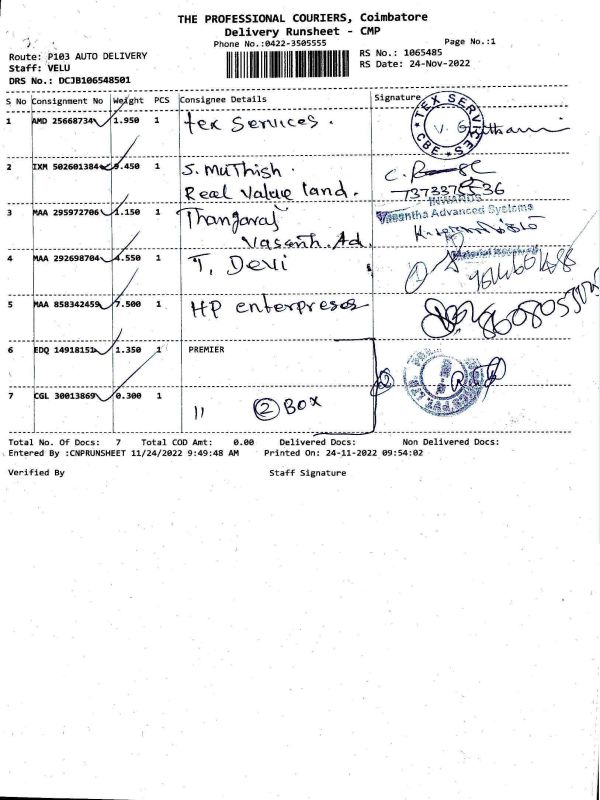 THE PROFESSIONAL COURIERS, Coimbatore
Delivery Runsheet - CMP
Phone No.:0422-3505555 Page No.:1
Route: P103 AUTO DELIVERY RS No.: 1065485
Staff: VELU RS Date: 24-Nov-2022
DRS No.: DCJB106548501
S No Consignment No Weight PCS Consignee Details Signature
1 AMD 25668734 1.950 1 Tex Services.
TEX SERVICES
CBE
2 IXM 502601384 .450 1 S. Muthish
Real Value land.
3 MAA 295972706 1.150 1 Thangaraj
Vasanth. Ad.
INWARDS
Vasantha Advanced Systems
4 MAA 292698704 4.550 1 T. Devi
Material Received
5 MAA 858342459 7.500 1 HP enterpreses
6 EDQ 14918151 1.350 1 PREMIER
7 CGL 30013869 0.300 1 11 2 BOX
Total No. Of Docs: 7 Total COD Amt: 0.00 Delivered Docs: Non Delivered Docs:
Entered By :CNPRUNSHEET 11/24/2022 9:49:48 AM Printed On: 24-11-2022 09:54:02
Verified By Staff Signature